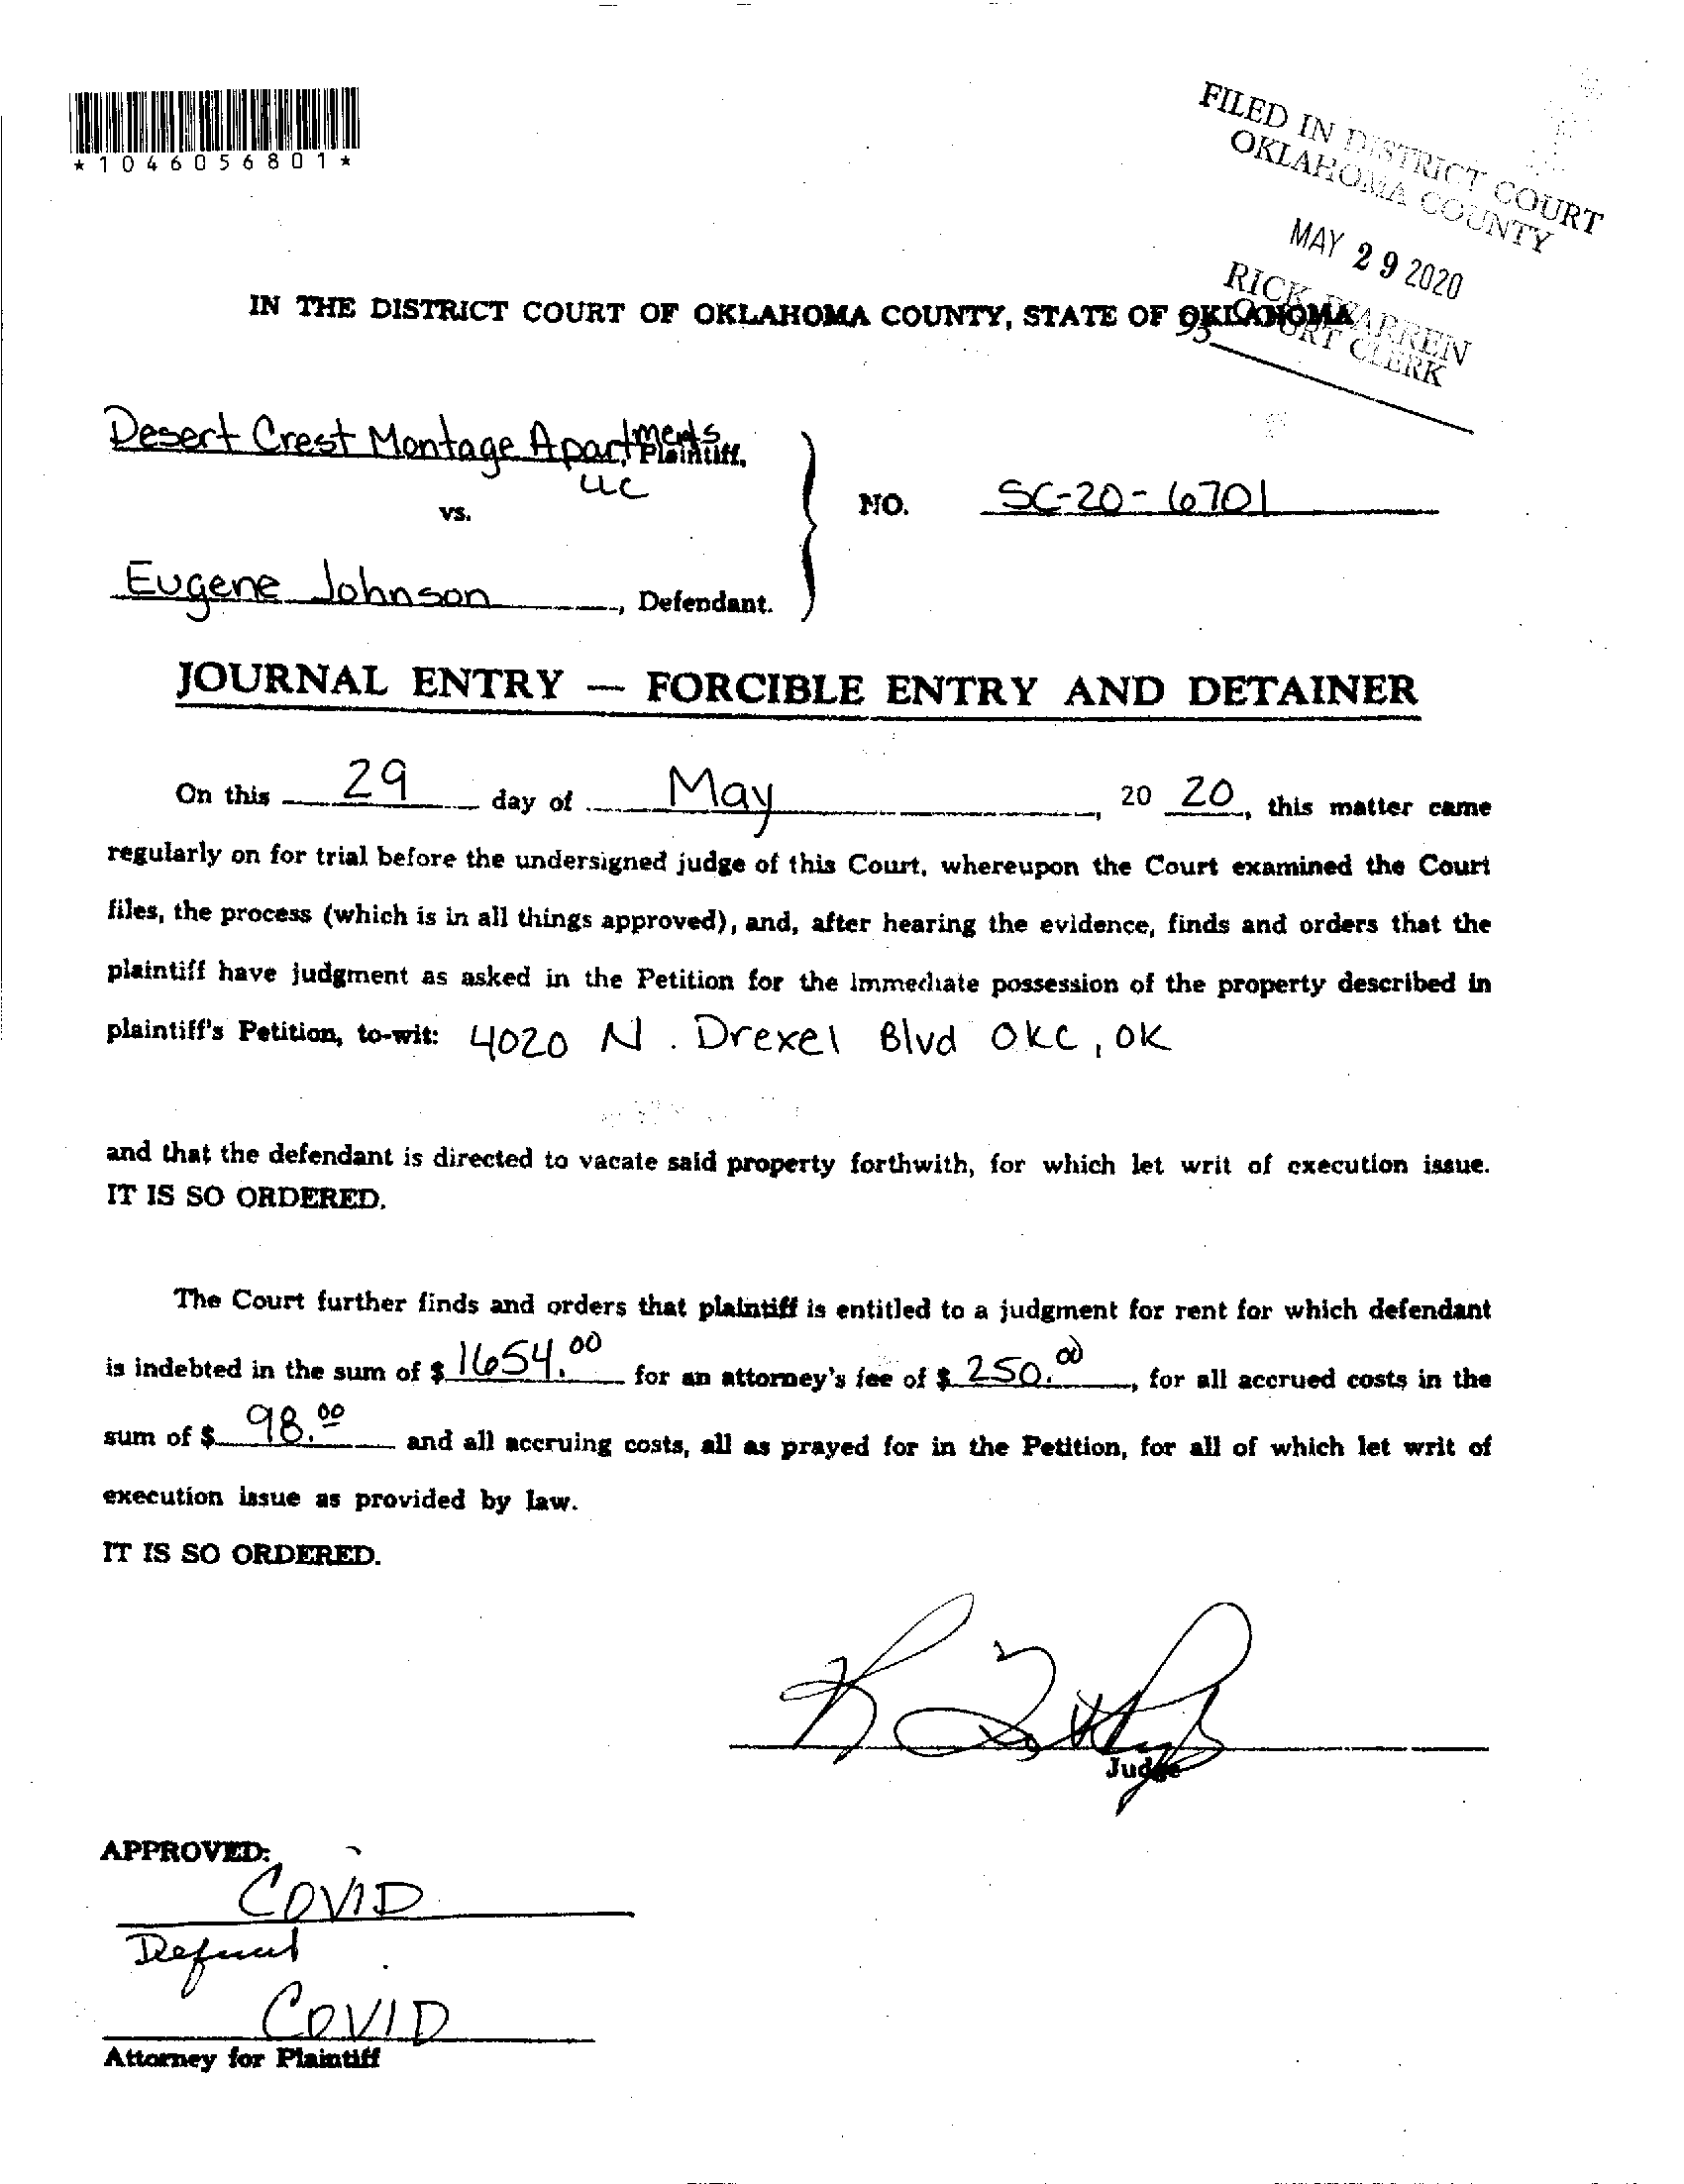 *1046056801*
FILED IN DISTRICT COURT
OKLAHOMA COUNTY
MAY 29 2020
RICK WARREN
COURT CLERK
95
IN THE DISTRICT COURT OF OKLAHOMA COUNTY, STATE OF OKLAHOMA
Desert Crest Montage Apartments
LLC
Plaintiff,
vs.
NO. SC-20-6701
Eugene Johnson, Defendant.
JOURNAL ENTRY — FORCIBLE ENTRY AND DETAINER
On this 29 day of May, 20 20, this matter came
regularly on for trial before the undersigned judge of this Court, whereupon the Court examined the Court
files, the process (which is in all things approved), and, after hearing the evidence, finds and orders that the
plaintiff have judgment as asked in the Petition for the immediate possession of the property described in
plaintiff's Petition, to-wit: 4020 N. Drexel Blvd OKC, OK
and that the defendant is directed to vacate said property forthwith, for which let writ of execution issue.
IT IS SO ORDERED.
The Court further finds and orders that plaintiff is entitled to a judgment for rent for which defendant
is indebted in the sum of $ 1654.00 for an attorney's fee of $ 250.00, for all accrued costs in the
sum of $ 98.00 and all accruing costs, all as prayed for in the Petition, for all of which let writ of
execution issue as provided by law.
IT IS SO ORDERED.
Judge
APPROVED:
COVID
COVID
Attorney for Plaintiff